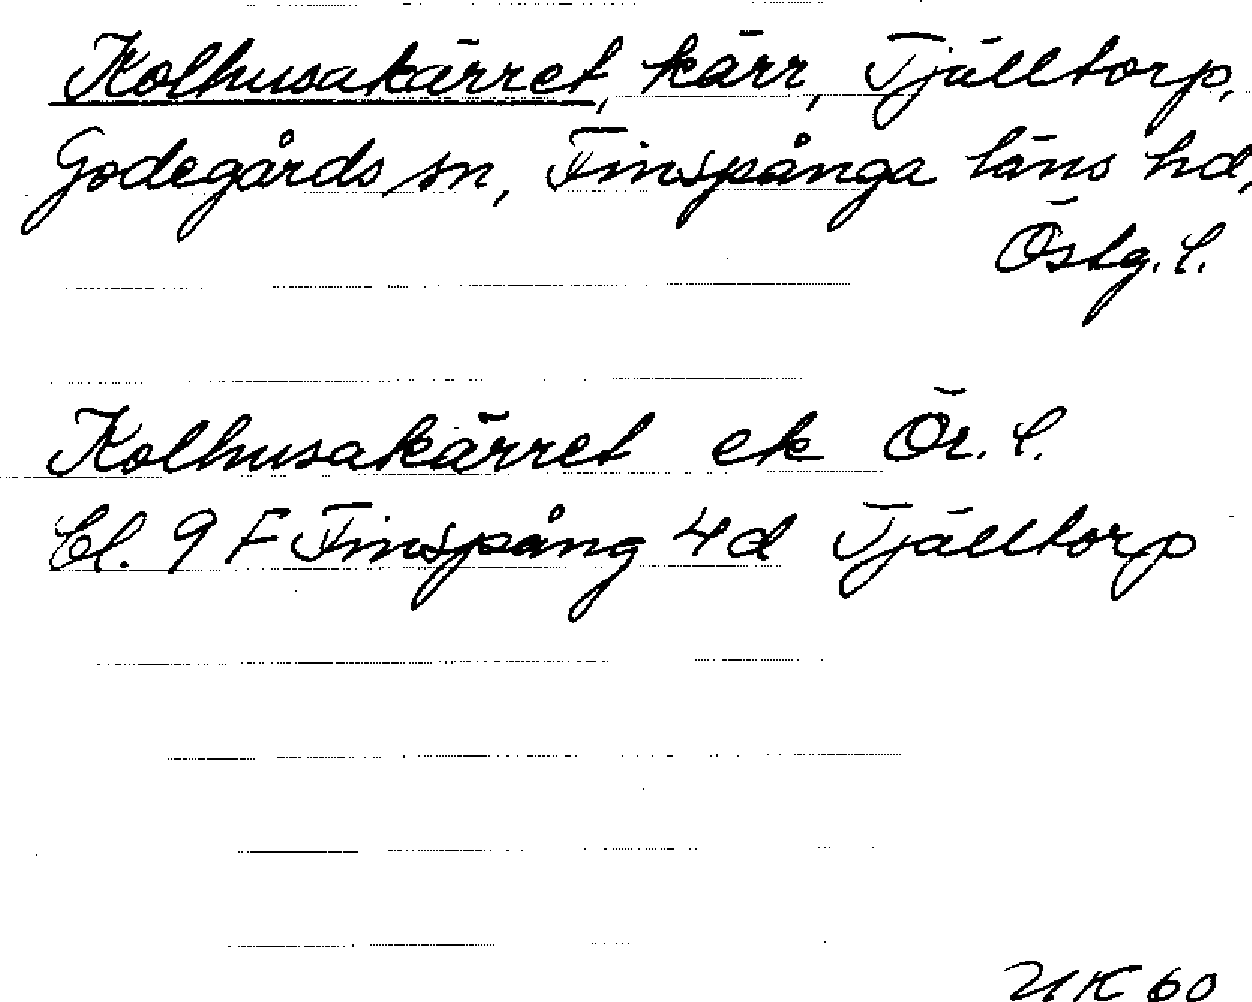 Kolhusakärret, kärr, Tjälltorp,
Godegårds sn, Finspånga läns hd,
Östg. l.
Kolhusakärret ek Ör. l.
Bl. 9 F Finspång 4d Tjälltorp
UK 60